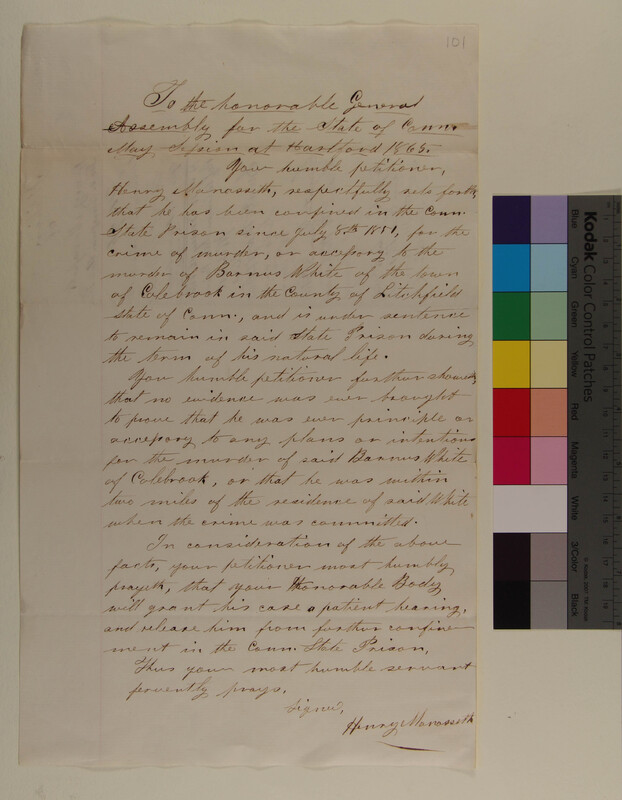 101
To the honorable General
Assembly for the State of Conn.
May Session at Hartford 1865.
Your humble petitioner,
Henry Manasseth, respectfully sets forth,
that he has been confined in the Conn.
State Prison since July 8th 1851, for the
crime of murder, or accessory to the
murder of Barnus White of the town
of Colebrook in the County of Litchfield
state of Conn., and is under sentence
to remain in said State Prison during
the term of his natural life.
Your humble petitioner further showeth,
that no evidence was ever brought
to prove that he was ever principle or
accessory to any plans or intentions
for the murder of said Barnus White
of Colebrook, or that he was within
two miles of the residence of said White
when the crime was committed.
In consideration of the above
facts, your petitioner most humbly
prayeth, that your Honorable Body
will grant his case a patient hearing,
and release him from further confine-
ment in the Conn. State Prison,
Thus your most humble servant
fervently prays.
Signed,
Henry Manasseth
Kodak Color Control Patches
Blue
Cyan
Green
Yellow
Red
Magenta
White
3/Color
Black